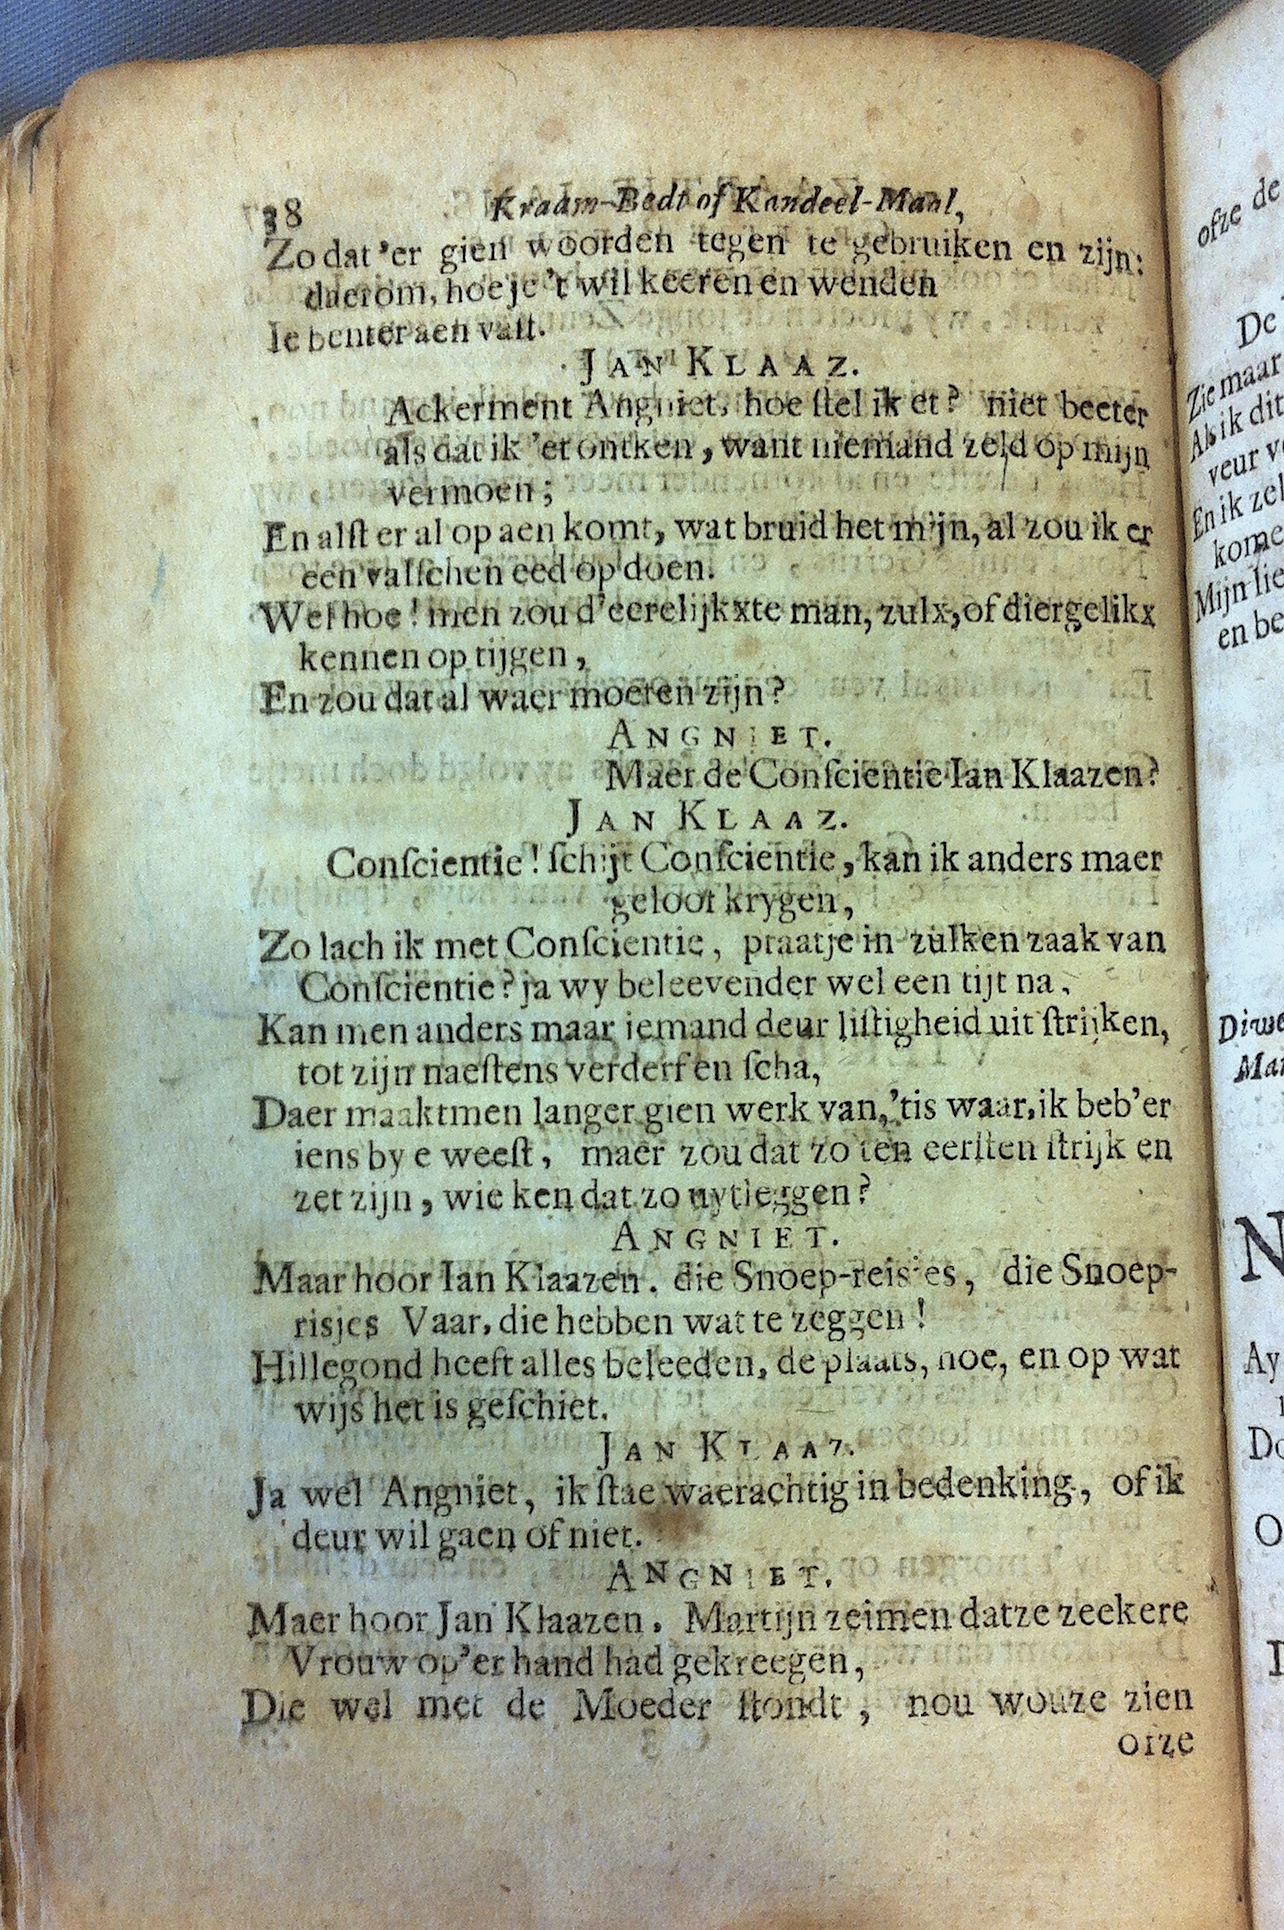 38 Kraam-Bedt of Kandeel-Maal,
Zo dat 'er gien woorden tegen te gebruiken en zijn:
daerom, hoe je 't wil keeren en wenden
Ie benter aen vast.
JAN KLAAZ.
Ackerment Angniet, hoe ſtel ik et? niet beeter
als dat ik 'et ontken, want niemand zeld op mijn
vermoen;
En alſt er al op aen komt, wat bruid het mijn, al zou ik er
een valſchen eed op doen.
Wel hoe! men zou d'eerelijkxte man, zulx, of diergelikx
kennen op tijgen,
En zou dat al waer moeten zijn?
ANGNIET.
Maer de Conſcientie Ian Klaazen?
JAN KLAAZ.
Conſcientie! ſchijt Conſcientie, kan ik anders maer
geloot krygen,
Zo lach ik met Conſcientie, praatje in zulken zaak van
Conſcientie? ja wy beleevender wel een tijt na,
Kan men anders maar iemand deur liſtigheid uit ſtrijken,
tot zijn naeſtens verderf en ſcha,
Daer maaktmen langer gien werk van, 'tis waar, ik beb'er
iens by e weeſt, maer zou dat zo ten eerſten ſtrijk en
zet zijn, wie ken dat zo uytleggen?
ANGNIET.
Maar hoor Ian Klaazen. die Snoep-reisjes, die Snoep-
risjes Vaar, die hebben wat te zeggen!
Hillegond heeft alles beleeden, de plaats, hoe, en op wat
wijs het is geſchiet.
JAN KLAAZ.
Ja wel Angniet, ik ſtae waerachtig in bedenking, of ik
deur wil gaen of niet.
ANGNIET.
Maer hoor Jan Klaazen. Martijn zeimen datze zeekere
Vrouw op'er hand had gekreegen,
Die wel met de Moeder ſtondt, nou wouze zien
ofze
ofze de
De
Zie maar
Als ik dit
veur
En ik zel
kome
Mijn lie
en be
Mar
N
Ay
Do
O